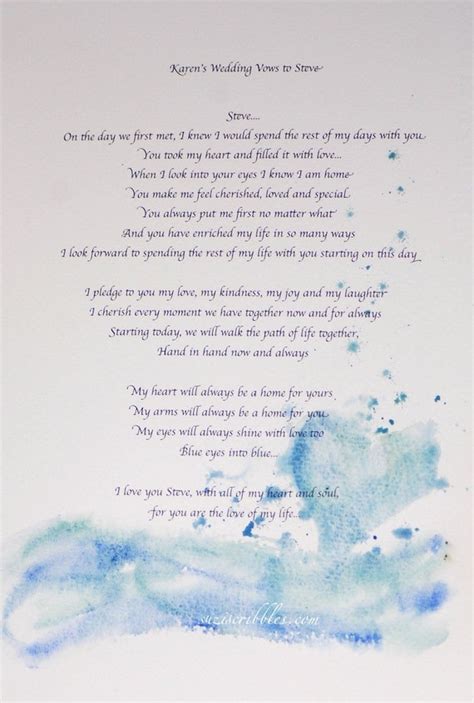 Karen's Wedding Vows to Steve
Steve....
On the day we first met, I knew I would spend the rest of my days with you
You took my heart and filled it with love...
When I look into your eyes I know I am home
You make me feel cherished, loved and special
You always put me first no matter what
And you have enriched my life in so many ways
I look forward to spending the rest of my life with you starting on this day
I pledge to you my love, my kindness, my joy and my laughter
I cherish every moment we have together now and for always
Starting today, we will walk the path of life together,
Hand in hand now and always
My heart will always be a home for yours
My arms will always be a home for you
My eyes will always shine with love too
Blue eyes into blue...
I love you Steve, with all of my heart and soul,
for you are the love of my life...
suzascribbles.com